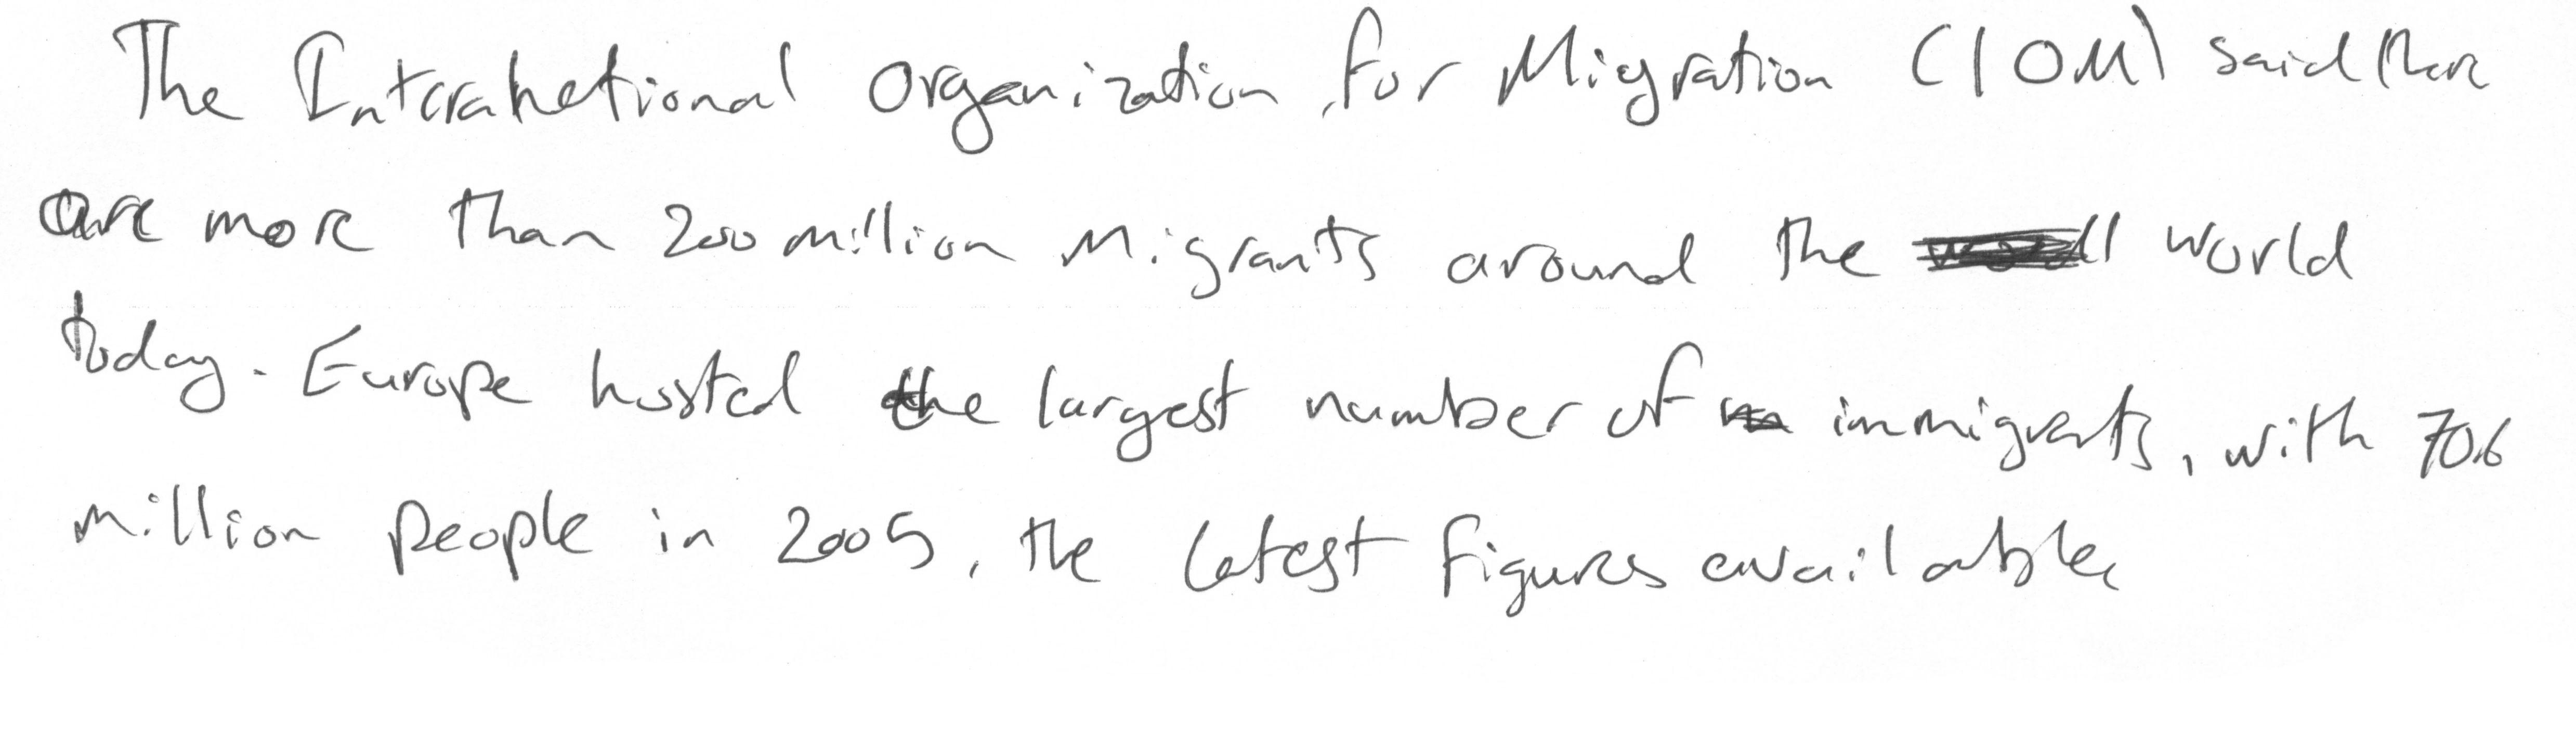 The Internahetional organization for Migration (IOM) said there
are more than 200 million Migrants around the world
today. Europe hosted the largest number of immigrants, with 70.6
million people in 2005, the latest figures available